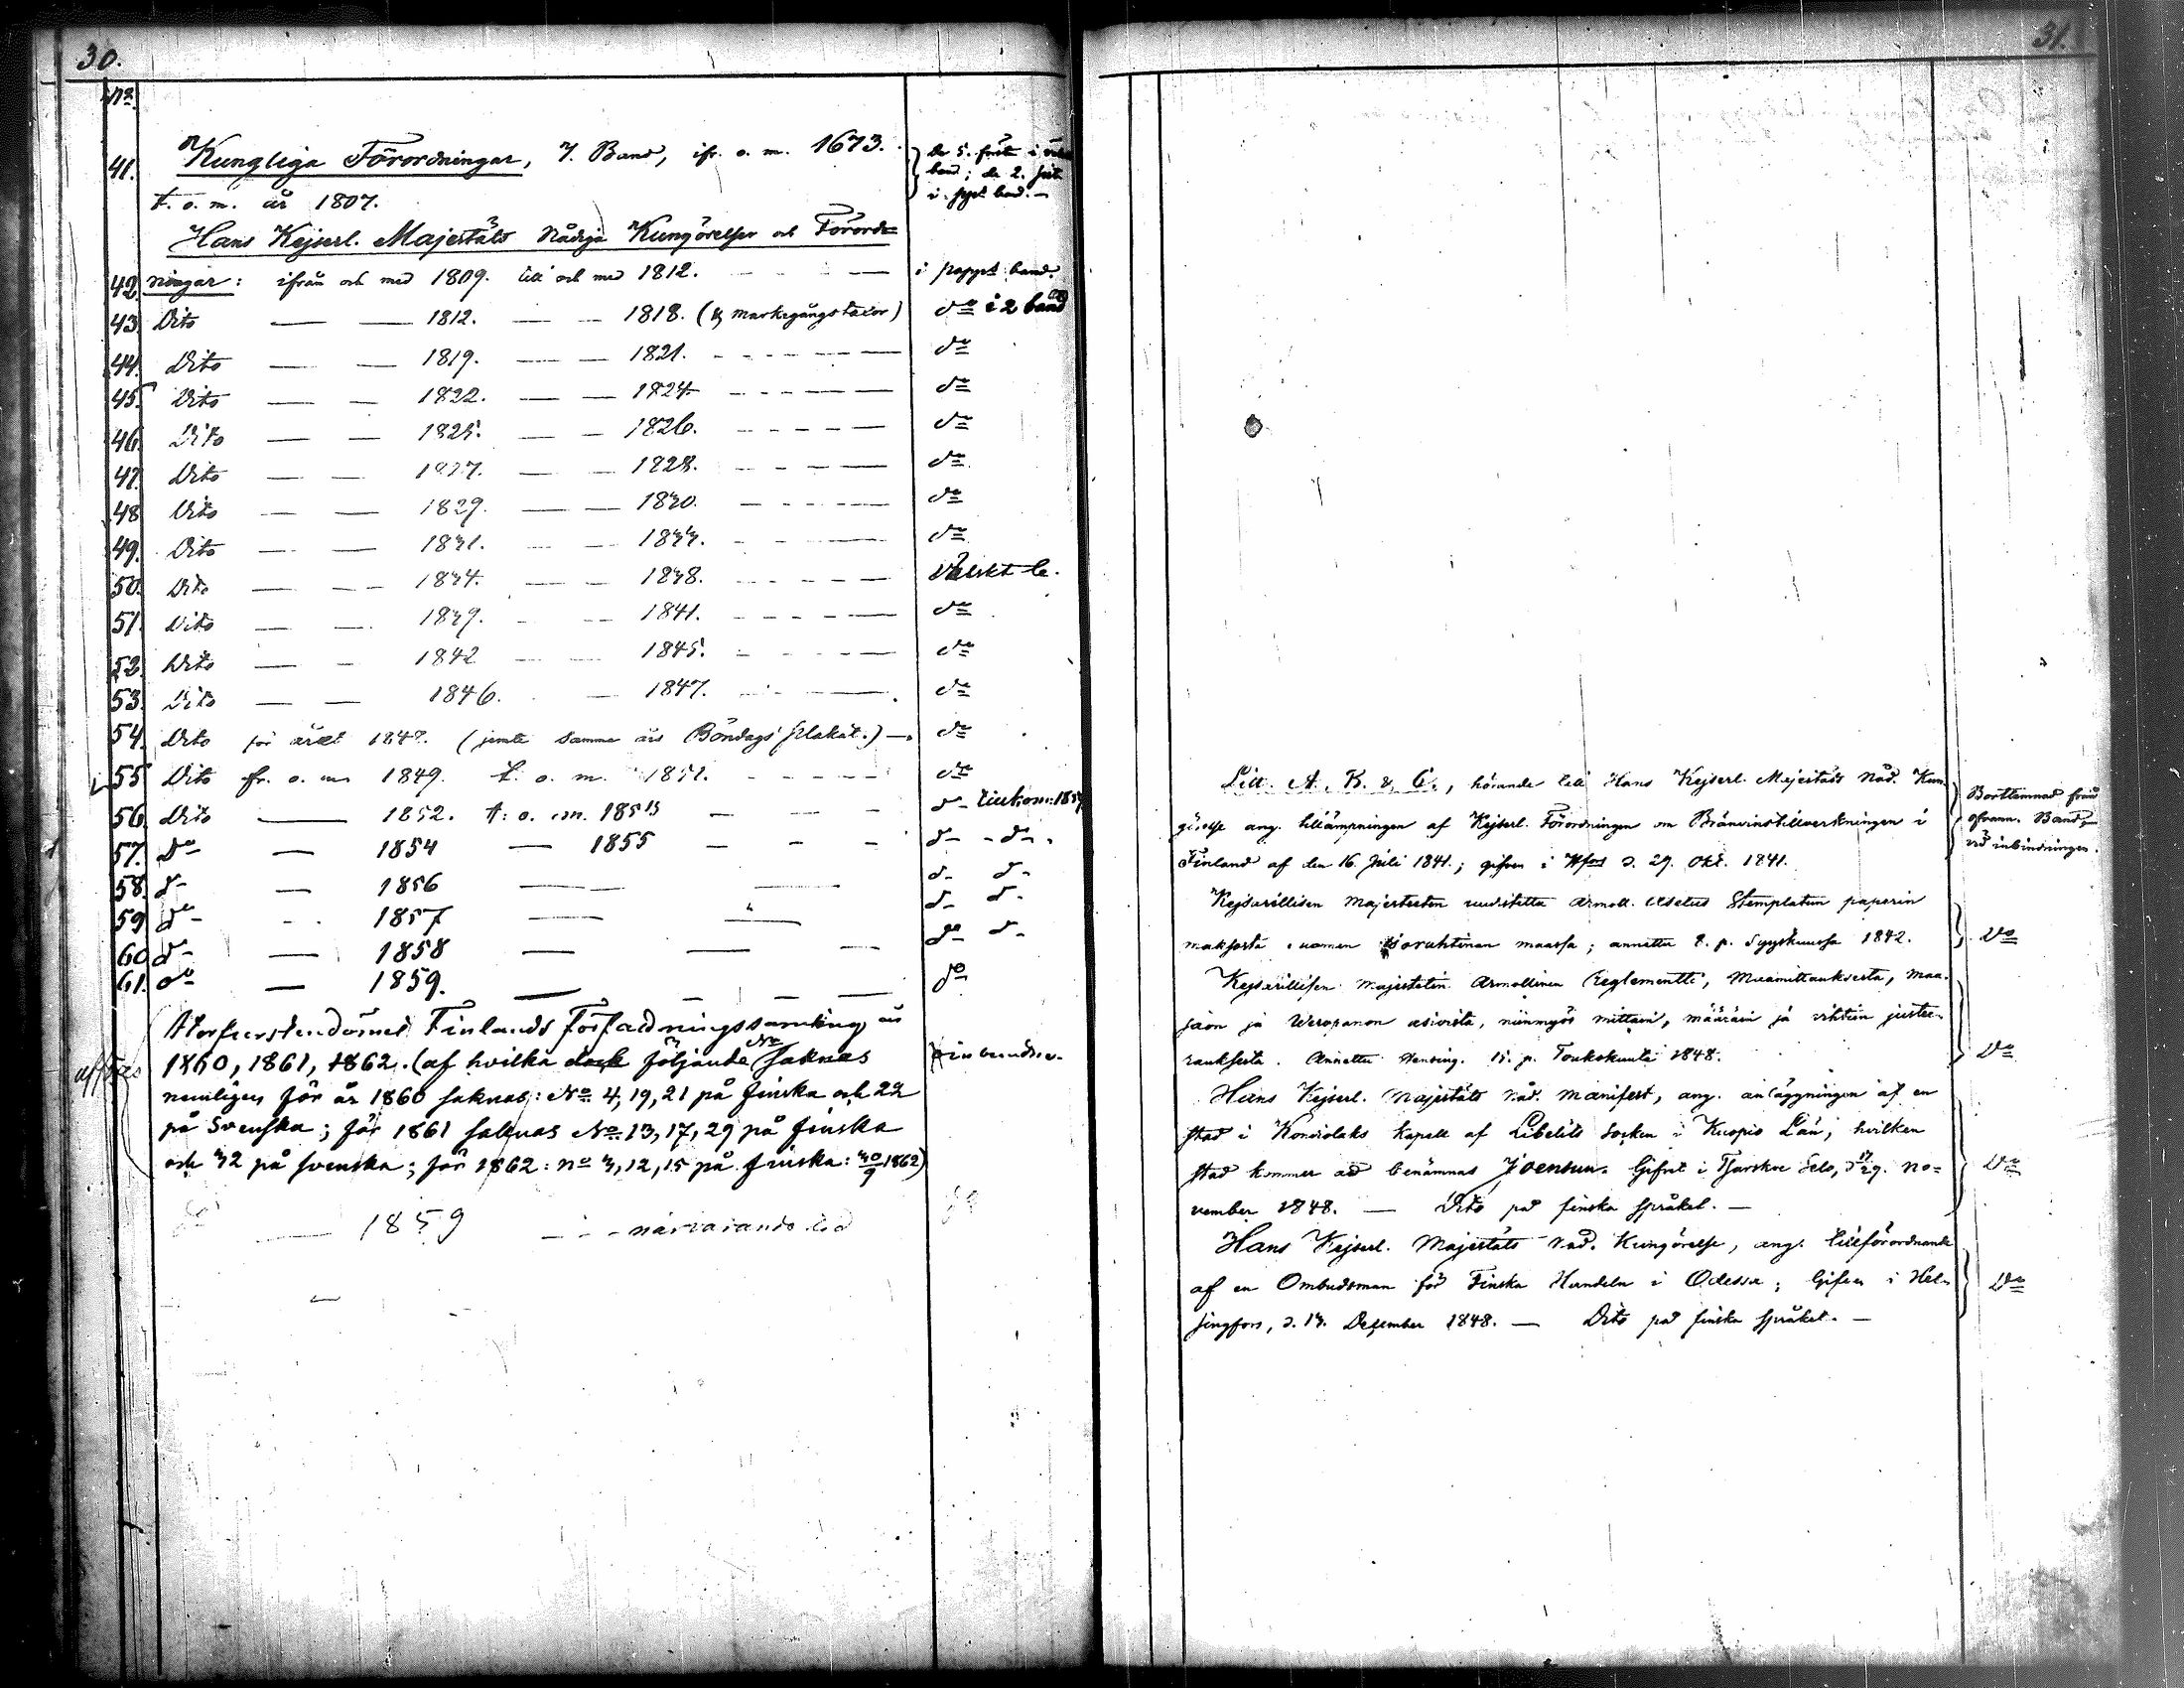 30.
No
41. Kungliga Förordningar, 7. Band, ifr. o. m. 1673. de 5. först i
band; de 2. sist.
t. o. m. år 1807. i ppt band. —
Hans Kejserl. Majestäts Nådiga Kungörelser och Förord=
42 ningar: ifrån och med 1809. till och med 1812. - - - — i pappt band.
43 Dito — — 1812. — — 1818. (& markegångs taxor) do i 2 band
44. Dito — — 1819. — — 1821. - - - - — do
45. Dito — — 1822. — — 1824. - - - - — do
46. Dito — — 1825. — — 1826. - - - - — do
47. Dito — — 1827. — — 1828. - - - — do
48 Dito — — 1829. — — 1830. - - - - — do
49. Dito — — 1831. — — 1833. - - — do
50. Dito — — 1834. — — 1838. - - - — Välskt b.
51. Dito — — 1839. - — 1841. - - - — do
52. Dito — — 1842 — — 1845. - - - — do
53. Dito — — 1846. — 1847. - - — do
54. Dito för året 1848. (jemte samma års Böndags plakat.) — do
55 Dito ifr. o. m 1849. t. o. m. 1851. - - - - do
56. Dito — 1852. t. o. m. 1853 — - - do
57. Do — 1854 — 1855 - - - do - do.
58. do — 1856 — — do do
59 do - - 1857 — — do do
60 do — 1858 — — - do do
61. do — 1859. — - - — do
Storfurstendömet Finlands Författningssamling år
1860, 1861, 1862. (af hvilka dock följande No saknas oinbundne.
nemligen för år 1860 saknas: No 4, 19, 21 på finska och 22
på Svenska; för 1861 saknas No 13, 17, 29 på finska
och 32 på svenska; för 1862: no 3, 12, 15 på finska: 30/9 1862)
do — 1859 — - närvarande do
31.
Litt. A. B. & C., hörande till Hans Kejserl. Majestäts Nåd. Kun-
görelse ang. tillämpningen af Kejserl. Förordningen om Bränvinstillverkningen i
Finland af den 16. Juli 1841.; gifven i Hfors d. 29. Okt. 1841.
Bortlemnad från
ofvann. Band,
vid inbindningen.
Kejsarillisen Majesteetin uudistettu Armoll. Asetus Stemplatun paperin
maksosta Suomen Isoruhtinan maassa; annettu 8. p. Syyskuussa 1842. Do
Kejsarillisen Majestetin Armollinen Reglementti, Maamittauksesta, maa-
jaon ja Weropanon asioista, niinmyös mittain, määräin ja vihtein justee-
rauksesta. Annettu Helsing. 15. p. Toukokuuta 1848. Do
Hans Kejserl. Majestäts Nåd. Manifest, ang. anläggningen af en
stad i Kondiolaks Kapell af Libelits Socken i Kuopio Län, hvilken
stad kommer att benämnas Joensuu. Gifvet i Tsarskoe Selo, d 17/29. No= Do
vember 1848. — Dito på finska språket. —
Hans Kejserl. Majestäts Nåd. Kungörelse, ang. tillförordnande
af en Ombudsman för Finska Handeln i Odessa; Gifven i Hel- Do
singfors, d. 13. December 1848. — Dito på finska språket. —